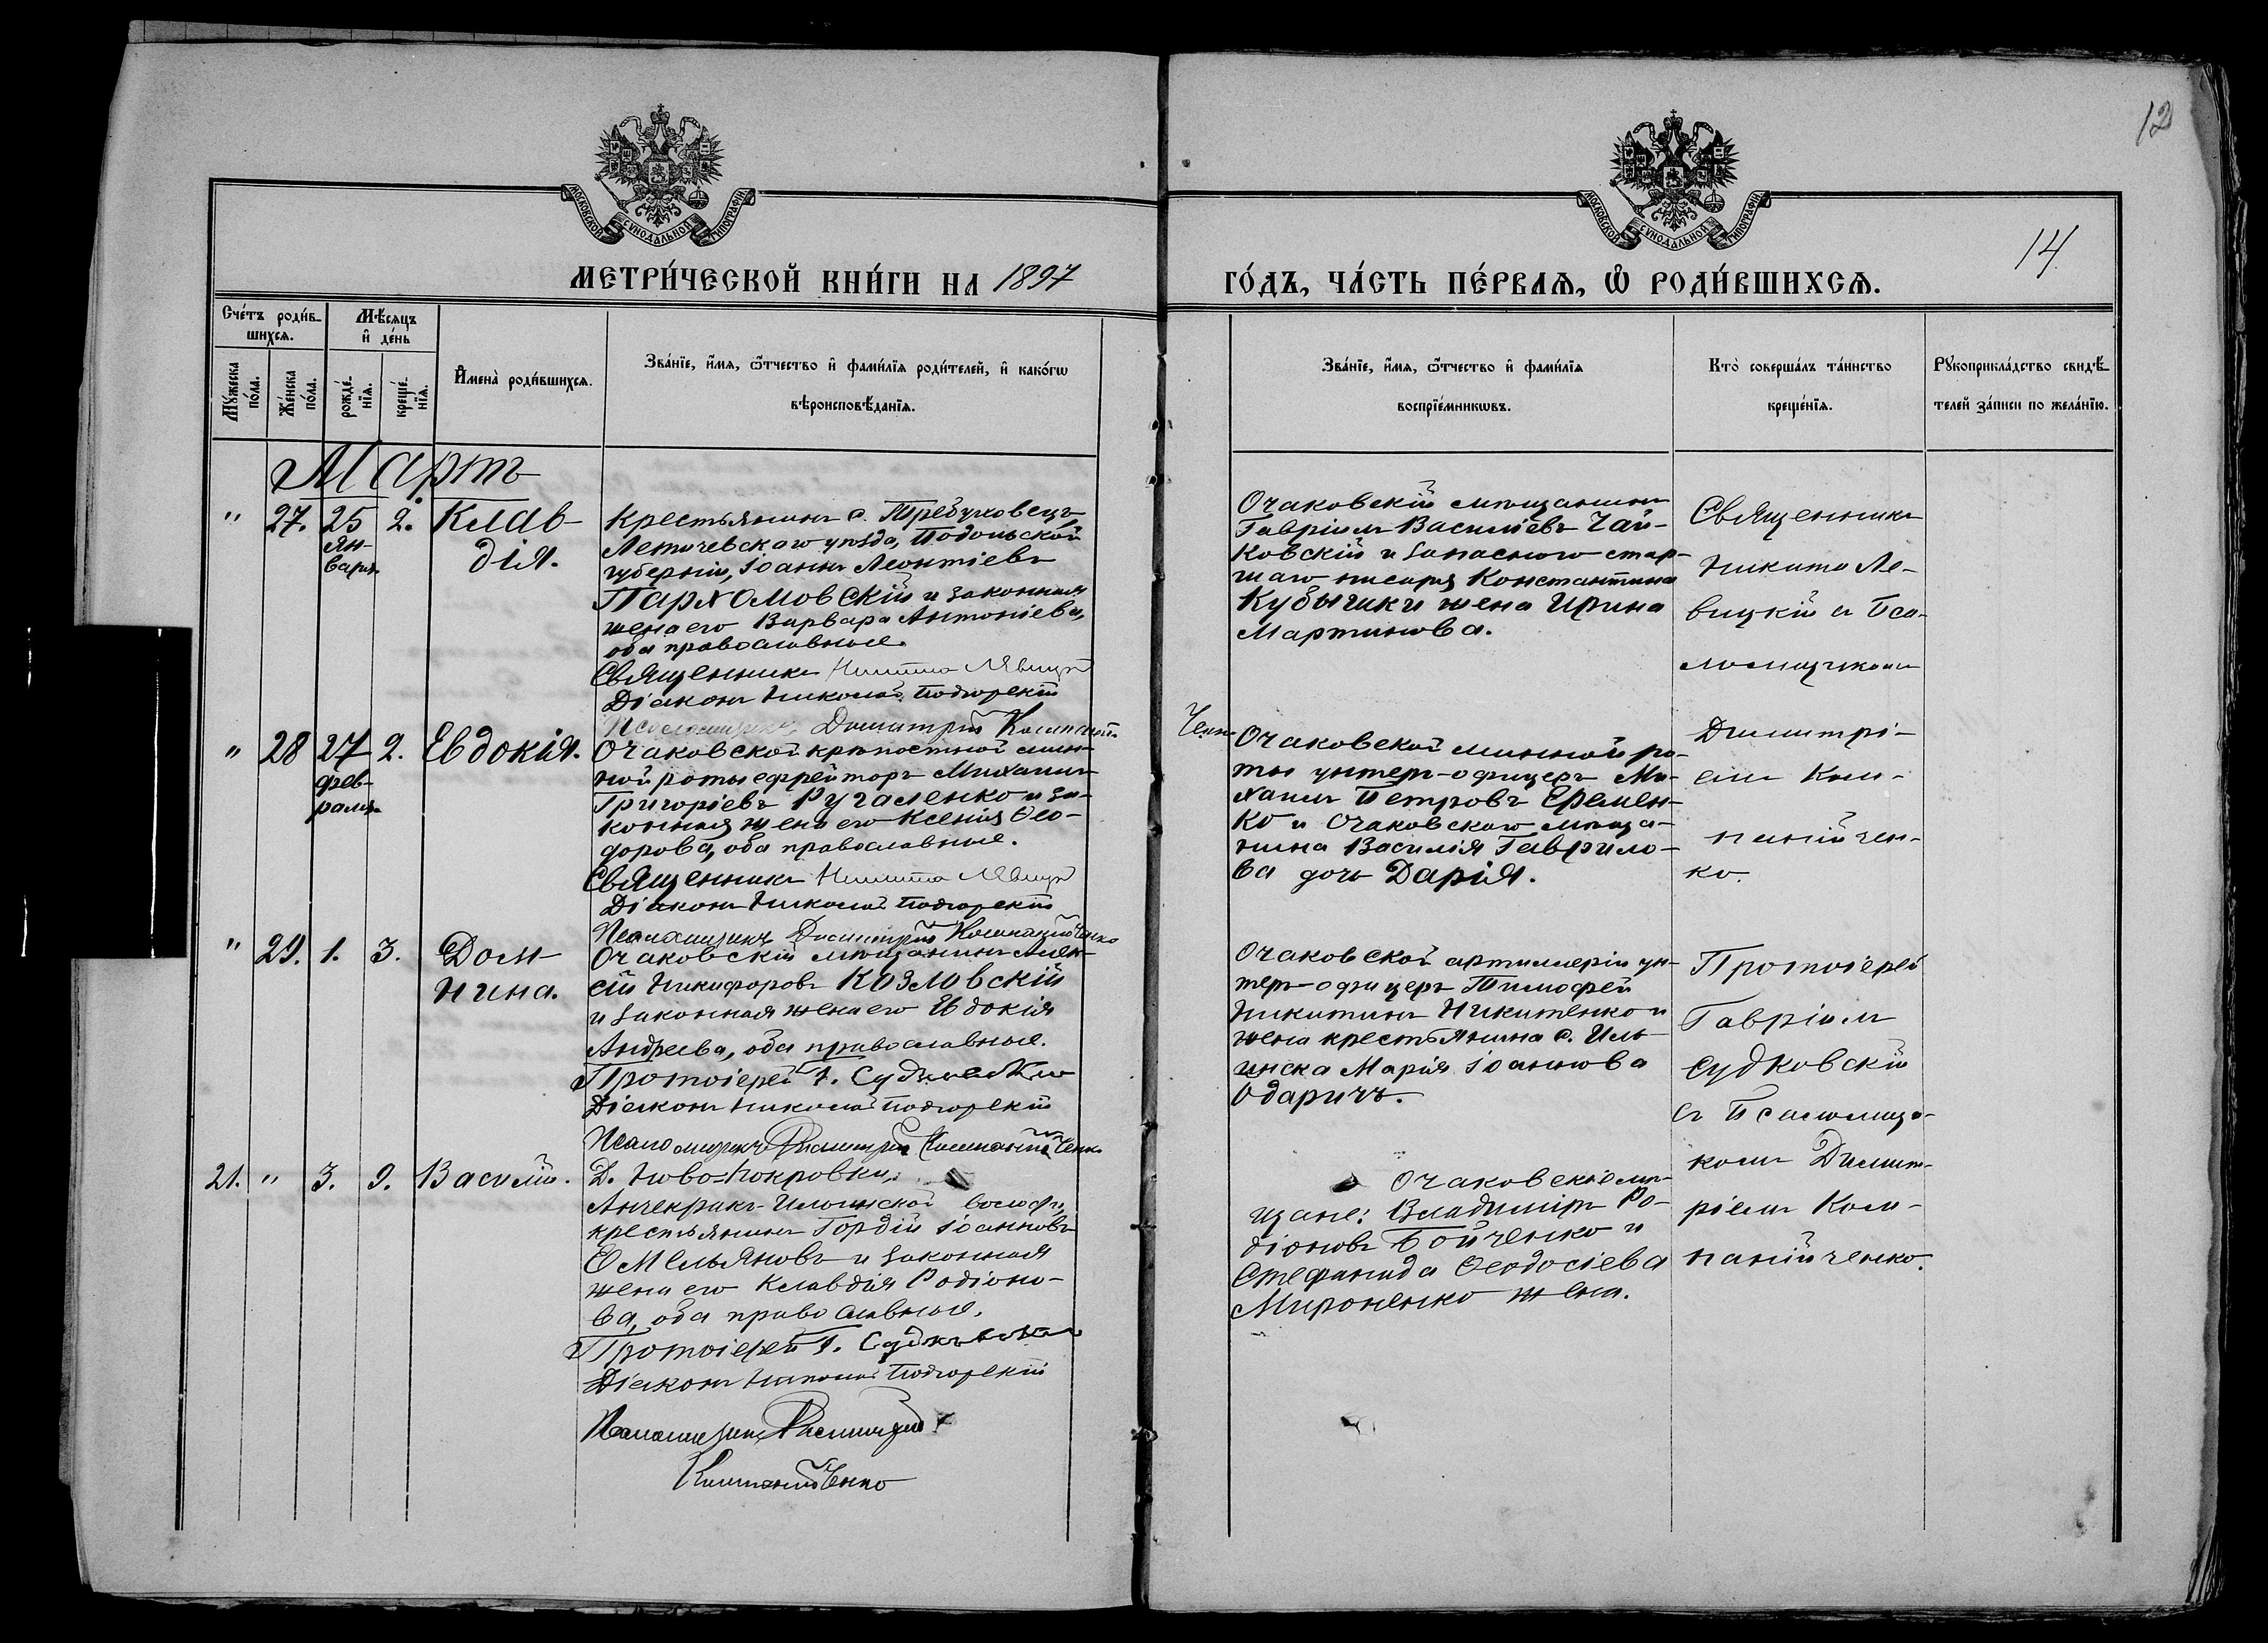 12
МОСКОВСКОЙ СѴНОДАЛЬНОЙ ТИПОГРАФІИ.
МОСКОВСКОЙ СѴНОДАЛЬНОЙ ТИПОГРАФІИ.
14.
МЕТРИ́ЧЕСКОЙ КНИ́ГИ НА 1897
ГО́ДЪ, ЧА́СТЬ ПЕ́РВАѦ, Ѡ҆ РОДИ́ВШИХСѦ.
Сче́тъ роди́в-
шихсѧ.
Мѹ́жеска
по́ла.
Же́нска
по́ла.
Мѣ́сѧцъ
и҆ де́нь
рожде́-
нїѧ.
креще́-
нїѧ.
И҆мена̀ роди́вшихсѧ.
Зва́нїе, и҆́мѧ, ѻ҆́тчество и҆ фами́лїѧ роди́телей, и҆ како́гѡ
вѣроисповѣ́данїѧ.
Зва́нїе, и҆́мѧ, ѻ҆́тчество и҆ фами́лїѧ
воспрїе́мникѡвъ.
Кто̀ соверша́лъ та́инство
креще́нїѧ.
Рѹкоприкла́дство свидѣ́-
телей за́писи по жела́нїю.
Мартъ
" 27. 25 2. Клав-
Ян-
варя.
дія.
Крестьянинъ с. Требуховецъ
Летичевскаго уѣзда, Подольской
губерніи, Іоаннъ Леонтіевъ
Пархомовскій и законная
жена его Варвара Антоніева,
оба православные.
Священникъ Никита Левицкій
Діаконъ Николай Подгорскій
Псаломщикъ Димитрій Компаній
ченко
Очаковскій мѣщанинъ
Гавріилъ Василіевъ Чай-
ковскій и запаснаго стар-
шаго писаря Константина
Кубышки жена Ирина
Мартинова.
Священникъ
Никита Ле-
вицкій съ Пса-
ломщикомъ
Димитрі-
емъ Ком-
панійчен-
ко.
" 28 27 2. Евдокія.
фев-
раля.
Очаковской крѣпостной мин-
ной роты ефрейторъ Михаилъ
Григоріевъ Ругаленко и за-
конная жена его Ксенія Ѳео-
дорова, оба православные.
Священникъ Никита Левицкій
Діаконъ Николай Подгорскій
Псаломщикъ Димитрій Компанійченко
Очаковской минной ро-
ты унтеръ-офицеръ Ми-
хаилъ Петровъ Еремен-
ко и Очаковскаго мѣща-
нина Василія Гаврило-
ва дочь Дарія.
" 29. 1. 3. Дом-
нина.
Очаковскій мѣщанинъ Алек-
сій Никифоровъ Козловскій
и законная жена его Евдокія
Андреева, оба православные.
Протоіерей Г. Судковскій
Діаконъ Николай Подгорскій
Псаломщикъ Димитрій Компанійченко
Очаковской артиллеріи ун-
теръ-офицеръ Тимофей
Никитинъ Никитенко и
жена крестьянина с. Иль-
инска Марія Іоаннова
Одаричъ.
Протоіерей
Гавріилъ
Судковскій
съ Псаломщи-
комъ Димит-
ріемъ Ком-
панійченко.
21. " 3. 9. Василій.
Д. Ново-Покровки,
Анчекракъ-Ильинской волости,
крестьянинъ Гордій Іоанновъ
Омельяновъ и законная
жена его Клавдія Родіоно-
ва, оба православные.
Протоіерей Г. Судковскій
Діаконъ Николай Подгорскій
Псаломщикъ Димитрій
Компанійченко
Очаковскіе мѣ-
щане: Владиміръ Ро-
діоновъ Бойченко и
Стефанида Ѳеодосіева
Мироненко жена.